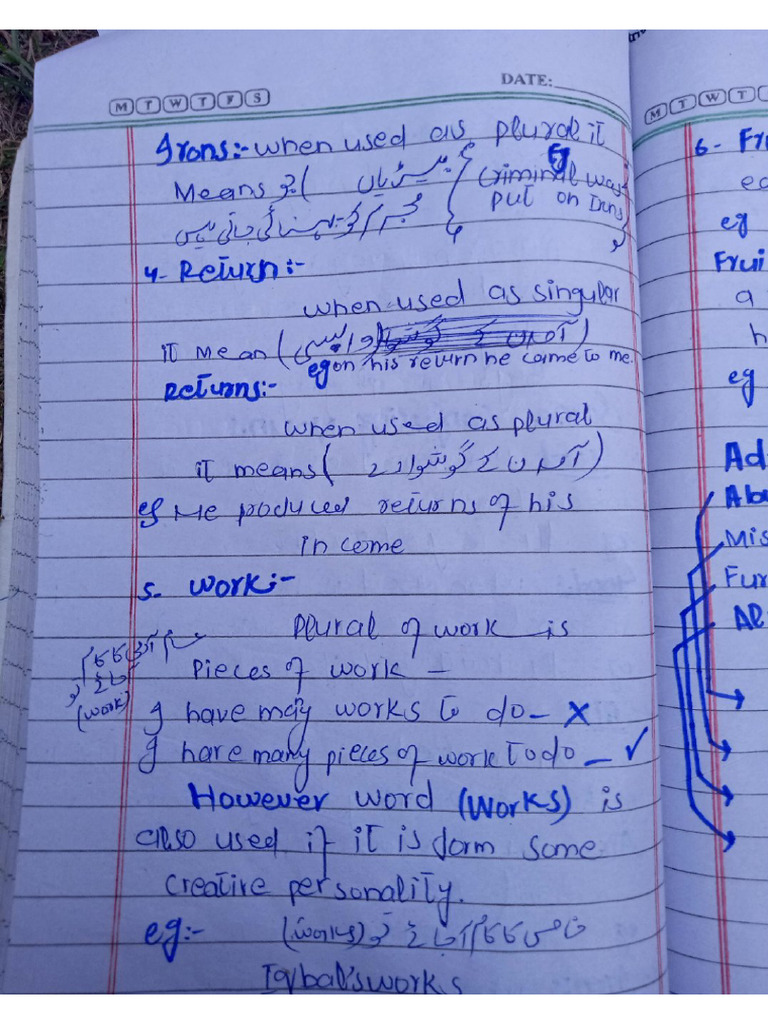 DATE:
M T W T F S
Irons:- when used as plural it
Means جو ( بیڑیاں
eg Criminal was
put on Irons
مجرم کو پہنائی جاتی ہیں
4- Return:-
when used as singular
it mean (واپسی)
eg on his return he came to me.
Returns:-
when used as plural
it means ( آمدن کے گوشوارے )
eg He produced returns of his
in come
5- work:-
Plural of work is
Pieces of work -
عام آدمی کا کام
(work)
I have many works to do - X
I have many pieces of work to do - ✓
However word (works) is
also used if it is form some
creative personality.
eg:- (works) خاص کا کام آجائے تو
Iqbal's works
M T W T
6- Fru
eg
Frui
a
h
eg
Ad
Ab
Mis
Fur
Al